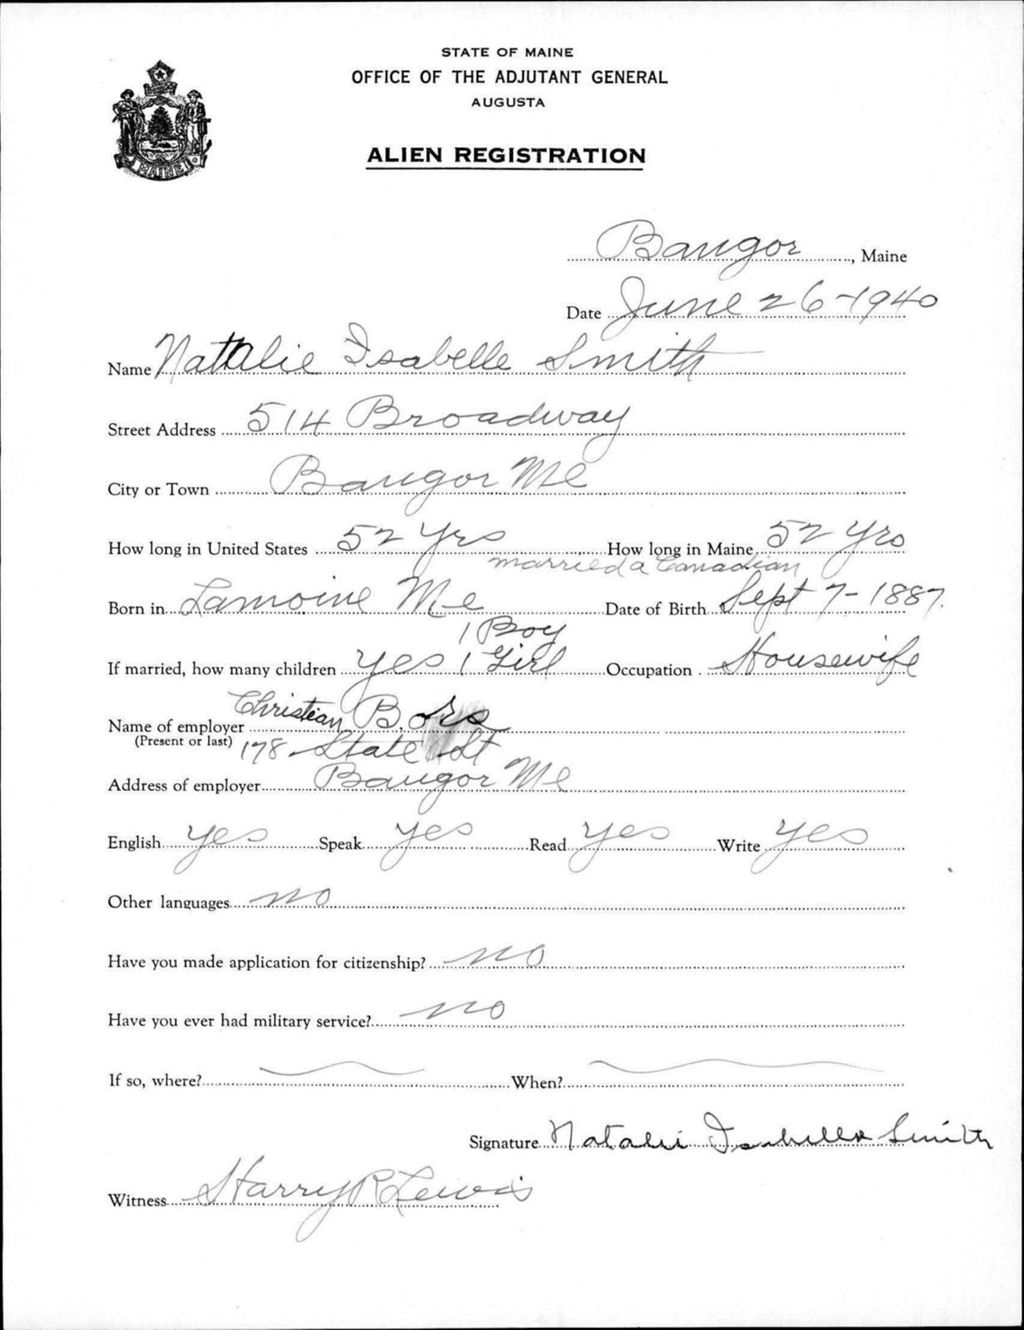 STATE OF MAINE
OFFICE OF THE ADJUTANT GENERAL
AUGUSTA
ALIEN REGISTRATION
MAINE
Bangor, Maine
Date June 26-1940
Name Natalie Isabelle Smith
Street Address 514 Broadway
City or Town Bangor Me
How long in United States 52 Yrs How long in Maine 52 Yrs
married a Canadian
Born in Lamoine Me Date of Birth Sept 7-1887.
1 Boy
If married, how many children yes 1 Girl Occupation Housewife
Name of employer Christian B. ors
(Present or last) 178 State St
Address of employer Bangor Me
English yes Speak yes Read yes Write yes
Other languages no
Have you made application for citizenship? no
Have you ever had military service? no
If so, where? When?
Signature Natalie Isabelle Smith
Witness Harry R Lewis